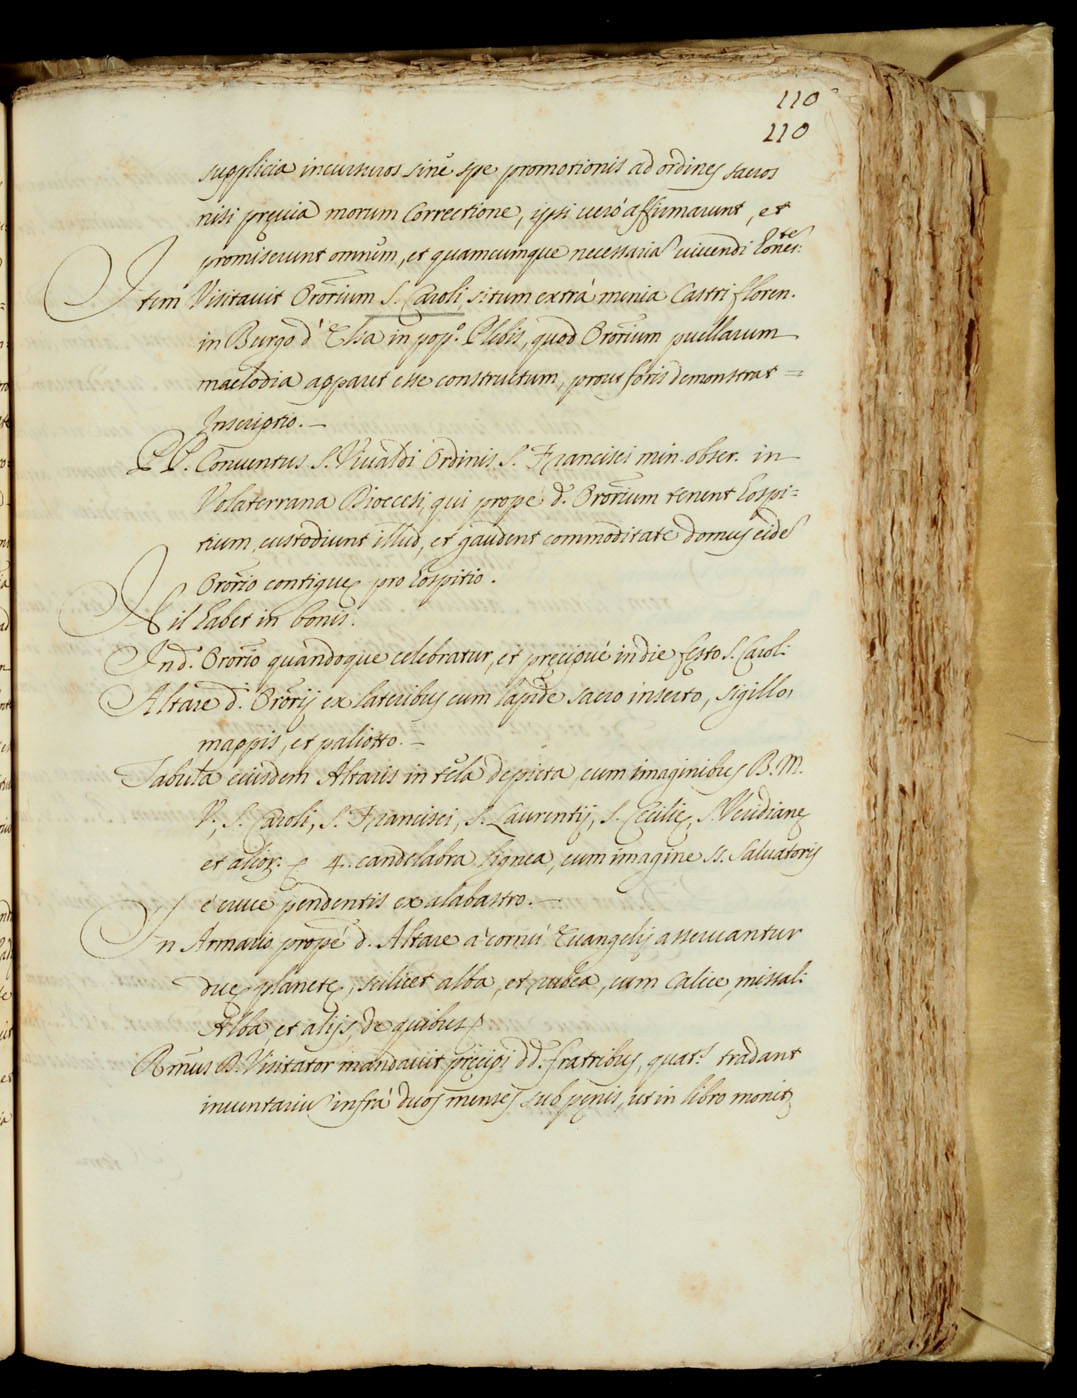 110
110
supplicia incursuros sine spe promotionis ad ordines sacros
nisi previa morum Correctione, ipsi uerò affirmarunt, et
promiserunt omnem, et quamcumque necessaria uiuendi honestte.
Item Visitauit Ororium S. Caroli situm extrà menia Castri floren.
in Burgo d'Elsa in popo. Plebis, quod Ororium puellarum
maelodia apparet esse constructum, prout foris demonstrat =
Inscriptio. —
PP. Conuentus S. Viualdi Ordinis S. Francisci min. obser. in
Volaterrana Diocesi, qui prope d. Ororium tenent hospi=
tium, custodiunt illud, et gaudent commoditate domus eide
Ororio contigue pro hospitio.
Nil habet in bonis.
In d. Ororio quandoque celebratur, et precipué in die festo S. Caroli
Altare d. Ororij ex lateribus cum lapide sacro inserto, sigillo,
mappis, et paliotto. —
Tabula eiusdem Altaris in tela depicta, cum imaginibus B. M.
V., S. Caroli, S. Francisci, S. Laurentij, S. Cecilie, S. Verdiane
et alior. 4. candelabra lignea, cum imagine SS. Saluatoris
è cruce pendentis ex alabastro. —
In Armario propé d. Altare à cornù Euangelij asseruantur
due planete, scilicet alba, et rubea, cum Calice, missali
Alba, et alijs, de quibus
Rmus D. Visitator mandauit precipi dd. fratribus, quats. tradant
inuentariu infrà duos menses sub penis, ut in libro monit.